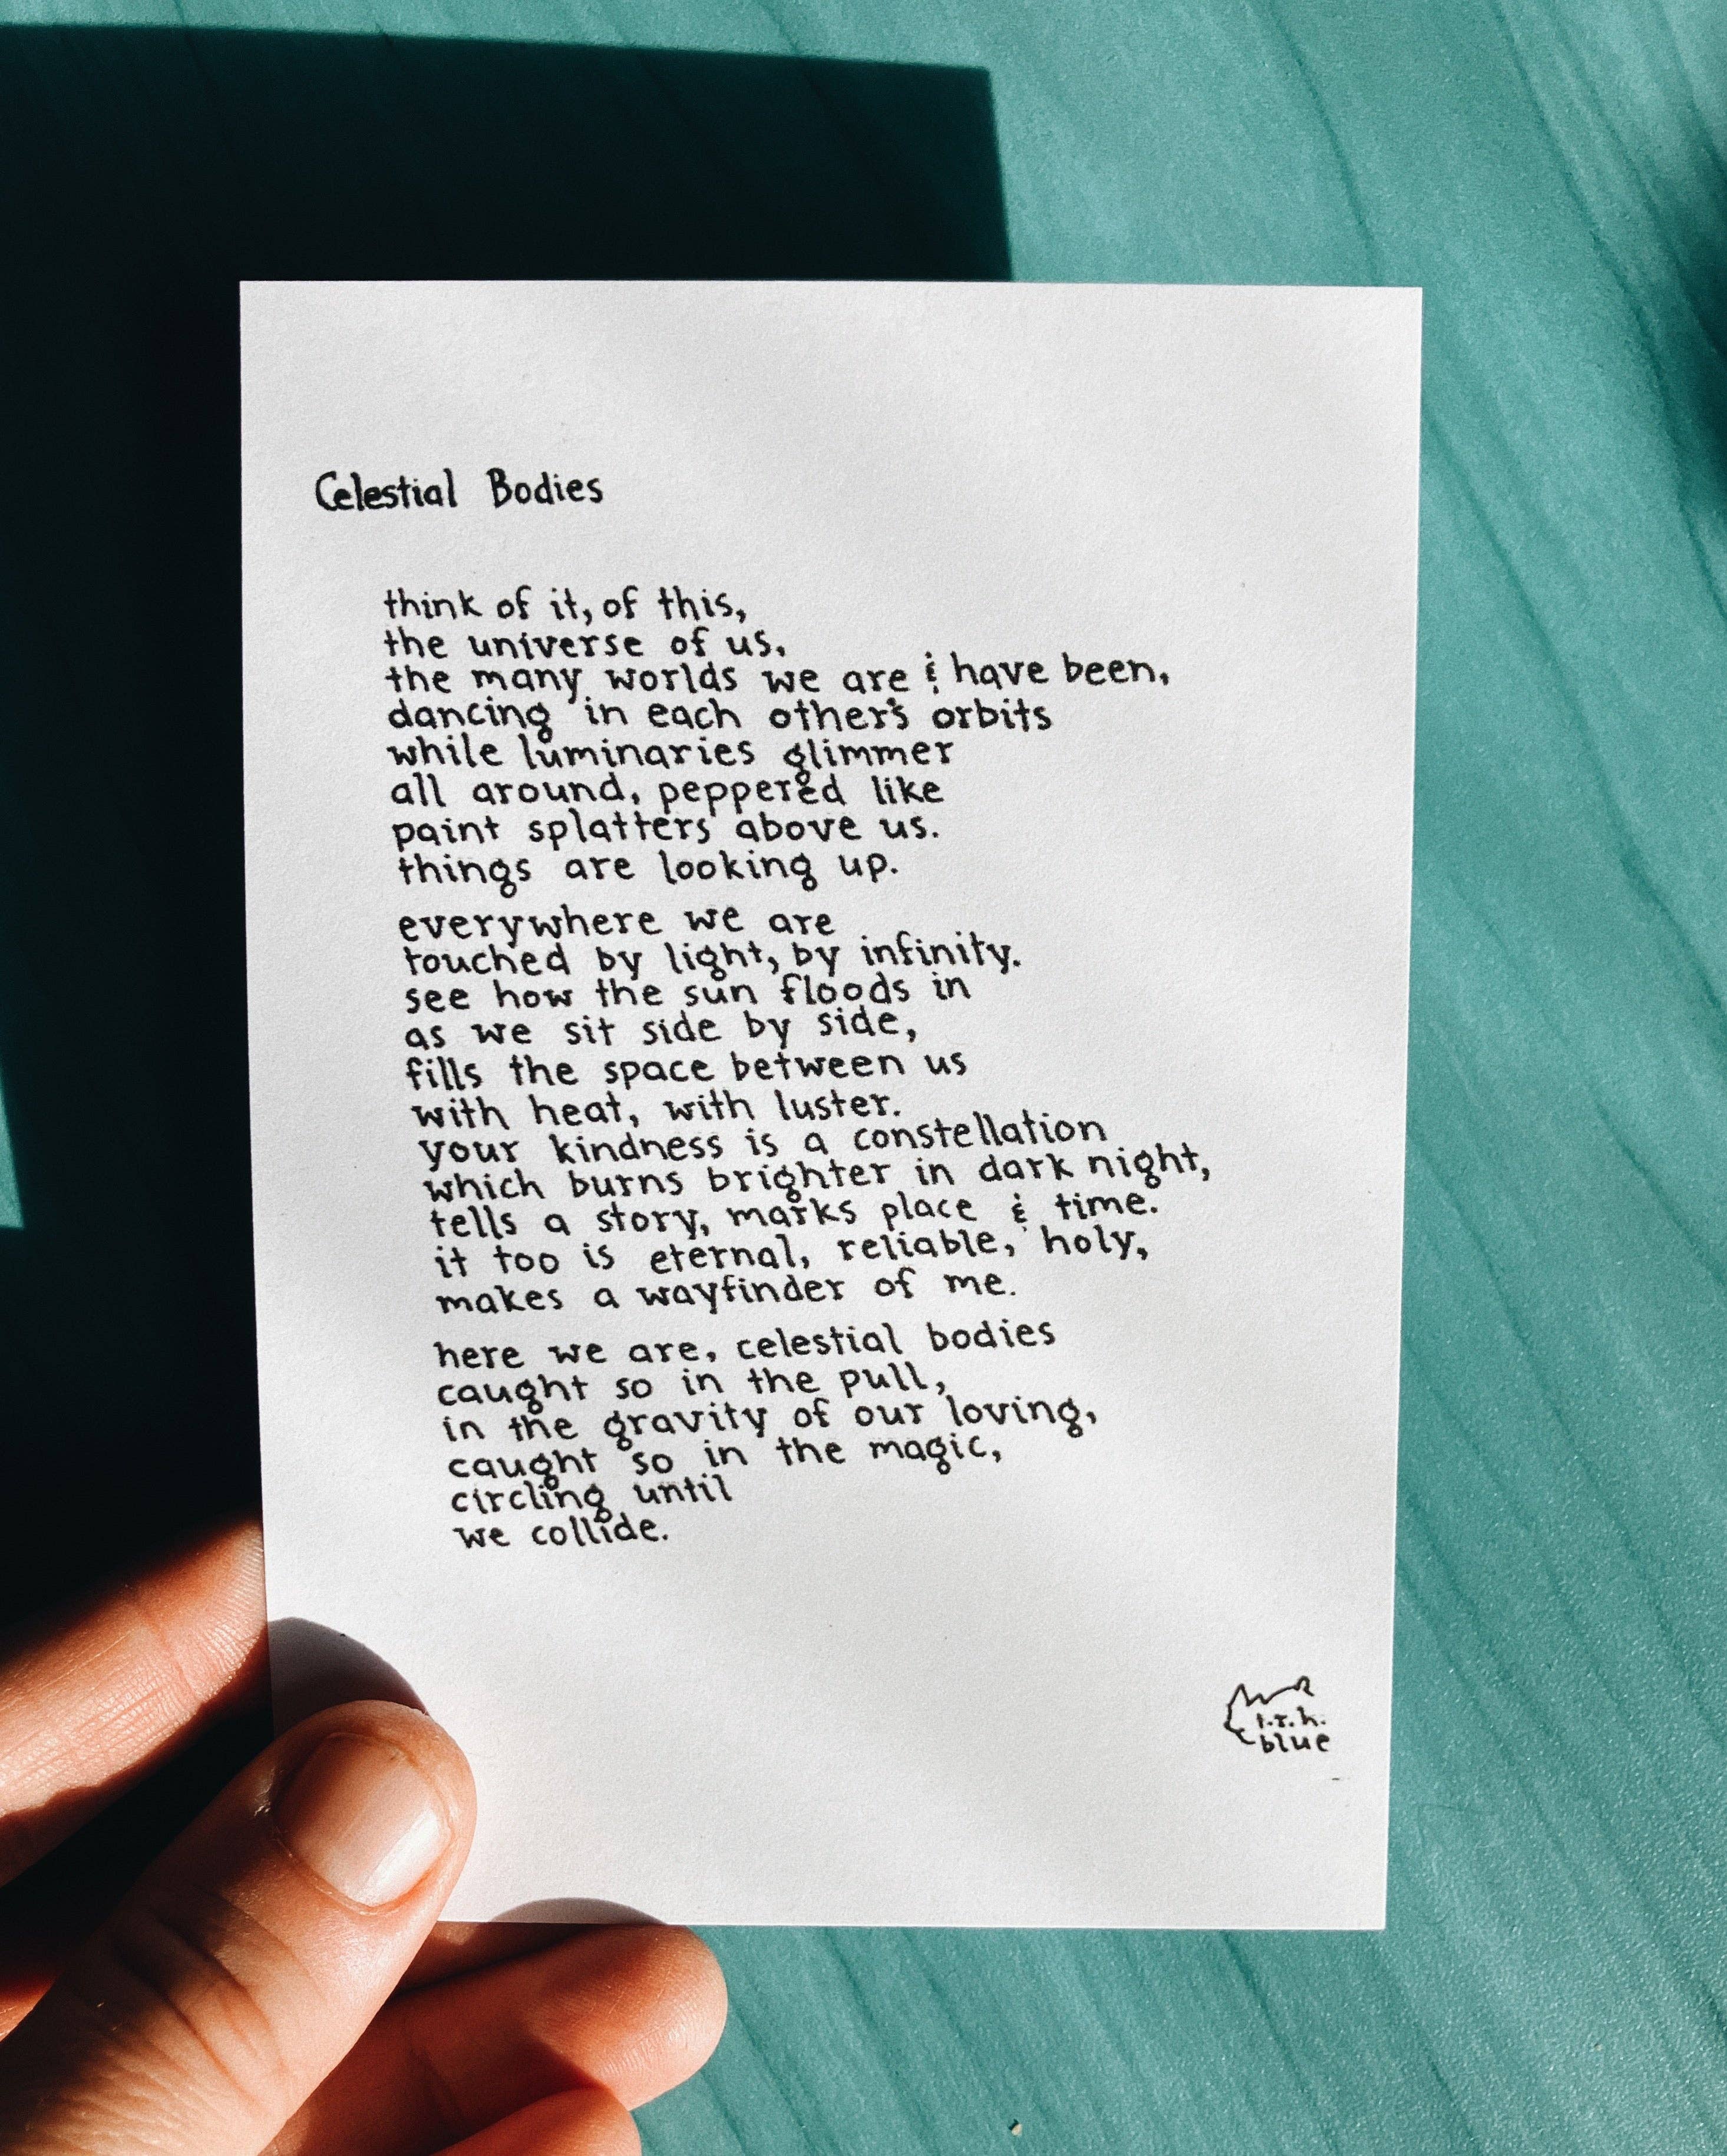 Celestial Bodies
think of it, of this,
the universe of us,
the many worlds we are & have been,
dancing in each other's orbits
while luminaries glimmer
all around, peppered like
paint splatters above us.
things are looking up.
everywhere we are
touched by light, by infinity.
see how the sun floods in
as we sit side by side,
fills the space between us
with heat, with luster.
your kindness is a constellation
which burns brighter in dark night,
tells a story, marks place & time.
it too is eternal, reliable, holy,
makes a wayfinder of me.
here we are, celestial bodies
caught so in the pull,
in the gravity of our loving,
caught so in the magic,
circling until
we collide.
blue